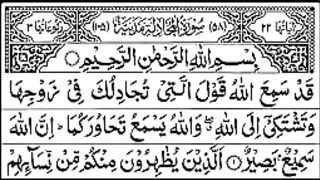 اٰیاتها ۲۲ (۵۸) سُوْرَةُ الْمُجَادَلَةِ مَدَنِيَّةٌ (۱۰۵) رکوعاتها ۳
بِسْمِ اللهِ الرَّحْمٰنِ الرَّحِيْمِ
قَدْ سَمِعَ اللهُ قَوْلَ الَّتِيْ تُجَادِلُكَ فِيْ زَوْجِهَا
وَتَشْتَكِيْٓ اِلَى اللهِ ۖ وَاللهُ يَسْمَعُ تَحَاوُرَكُمَا ؕ اِنَّ اللهَ
سَمِيْعٌۢ بَصِيْرٌ ۝۱ اَلَّذِيْنَ يُظٰهِرُوْنَ مِنْكُمْ مِّنْ نِّسَآئِهِمْ